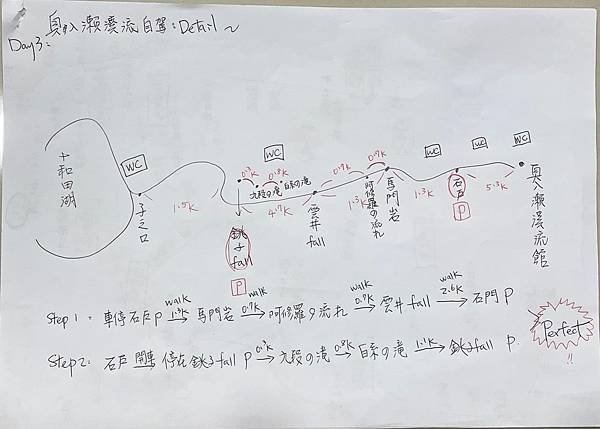 Day3: 奧入瀨溪流自駕: Detail ~
WC
WC
WC
WC
WC
十和田湖
子之口
1.5K
0.3K
0.8K
九段の滝
白糸の滝
銚子fall
P
4.7K
雲井fall
1.3K
0.7K
0.7K
阿修羅の流れ
馬門岩
1.3K
石戸
P
5.3K
奧入瀨溪流館
Step 1: 車停石戸P walk 1.3K 馬門岩 walk 0.7K 阿修羅の流れ walk 0.7K 雲井fall walk 2.6K 石門P
Step 2: 石戸 開車 停在銚子fall P 0.3K 九段の滝 0.8K 白糸の滝 1.1K 銚子fall P.
Perfect!!